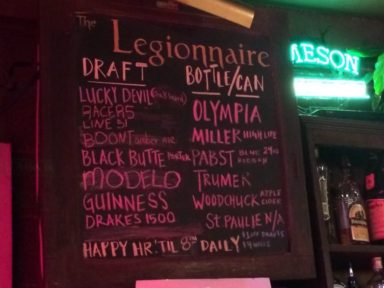 The
Legionnaire
DRAFT
LUCKY DEVIL
RACER 5
LINE 51
BOONT amber ALE
BLACK BUTTE PORTER
MODELO
GUINNESS
DRAKES 1500
BOTTLE/CAN
OLYMPIA
MILLER HIGH LIFE
PABST BLUE RIBBON
TRUMER
WOODCHUCK APPLE CIDER
ST. PAULIE N/A
HAPPY HR. 'TIL 8PM DAILY
$1 OFF DRAFTS
MESON